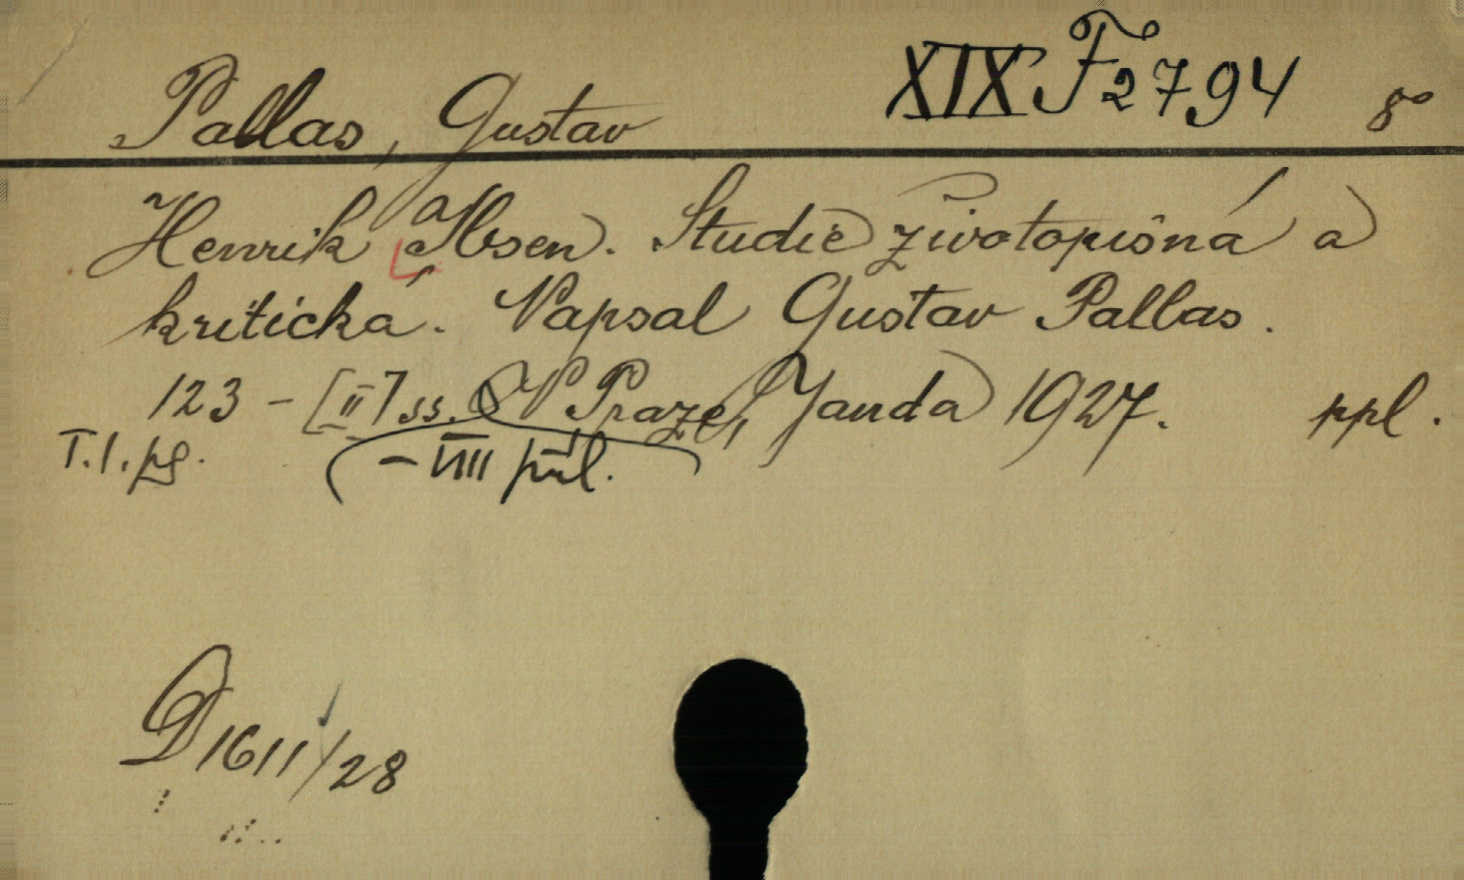 Pallas, Gustav XIX F 2794 8°
Henrik Ibsen. Studie životopisná a
kritická. Napsal Gustav Pallas.
123 - [II] ss. V Praze, Janda 1927. ppl.
T.l.pg. - VIII příl.
D 1611/28